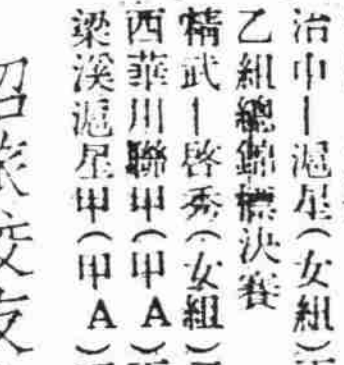 治中—滬星(女組)
乙組總錦標決賽
精武—啓秀(女組)
西華川聯甲(甲A)
梁溪滬星甲(甲A)